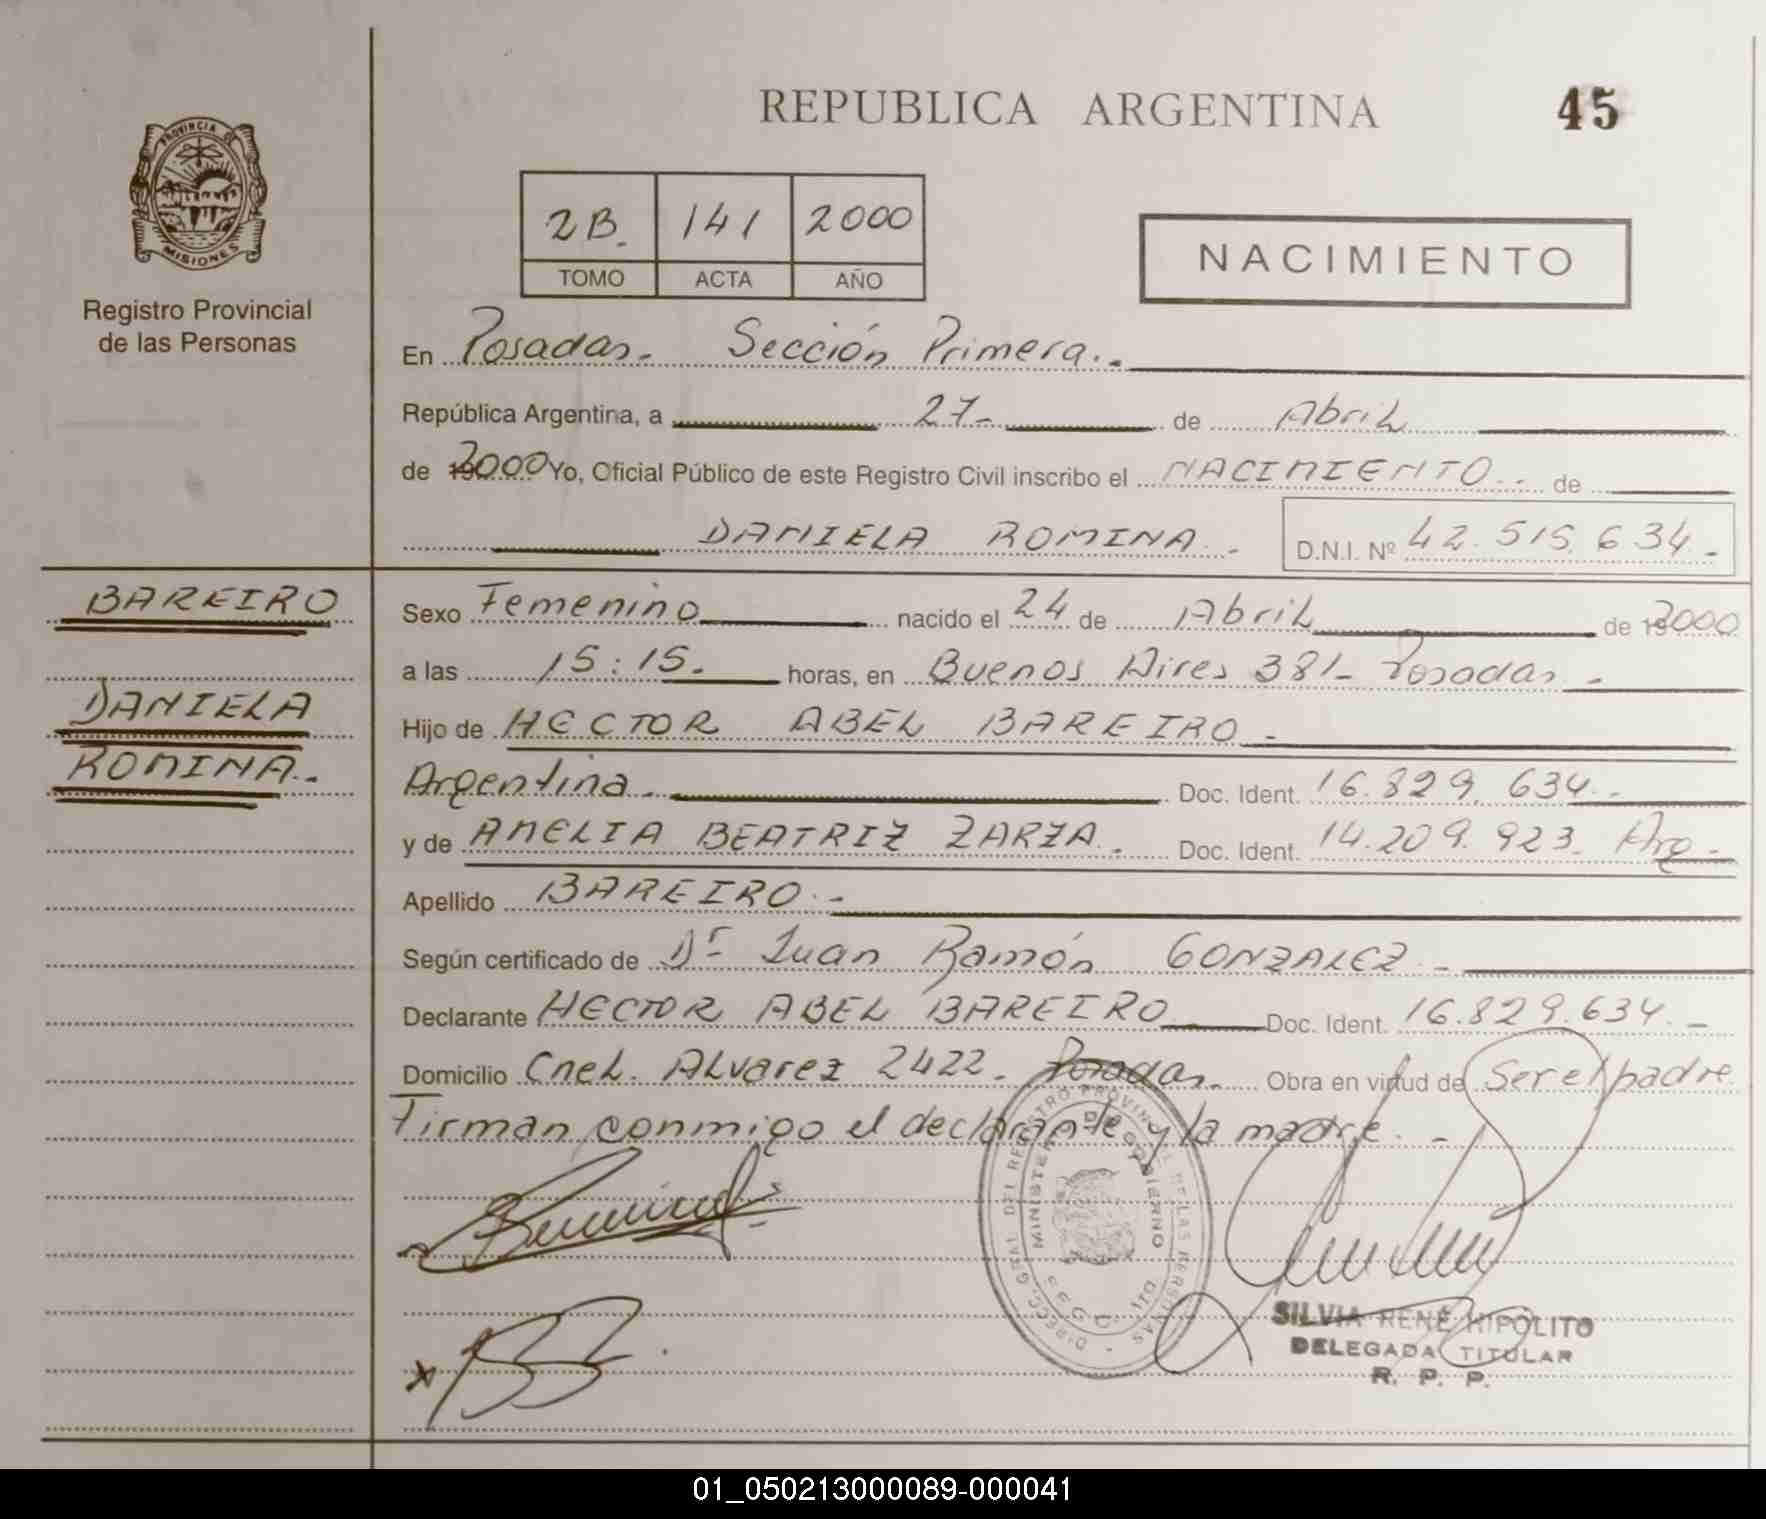 REPUBLICA ARGENTINA
45
PROVINCIA DE
MISIONES
Registro Provincial
de las Personas
2B. 141 2000
TOMO ACTA AÑO
NACIMIENTO
En Posadas. Sección Primera.
República Argentina, a 27 de Abril
de 2000 Yo, Oficial Público de este Registro Civil inscribo el NACIMIENTO de
DANIELA ROMINA. D.N.I. Nº 42.515.634.
BAREIRO
DANIELA
ROMINA.
Sexo Femenino nacido el 24 de Abril de 2000
a las 15:15. horas, en Buenos Aires 381- Posadas
Hijo de HECTOR ABEL BAREIRO
Argentina. Doc. Ident. 16.829.634.
y de AMELIA BEATRIZ ZARZA. Doc. Ident. 14.209.923. Arg.
Apellido BAREIRO.
Según certificado de Dr Juan Ramón GONZALEZ
Declarante HECTOR ABEL BAREIRO Doc. Ident. 16.829.634.
Domicilio Cnel. Alvarez 2422. Posadas. Obra en virtud de Ser el padre
Firman conmigo el declarante y la madre.
DIRECC. GRAL. DEL REGISTRO PROVINCIAL DE LAS PERSONAS
MINISTERIO DE GOBIERNO
SILVIA RENE HIPOLITO
DELEGADA TITULAR
R. P. P.
01_050213000089-000041